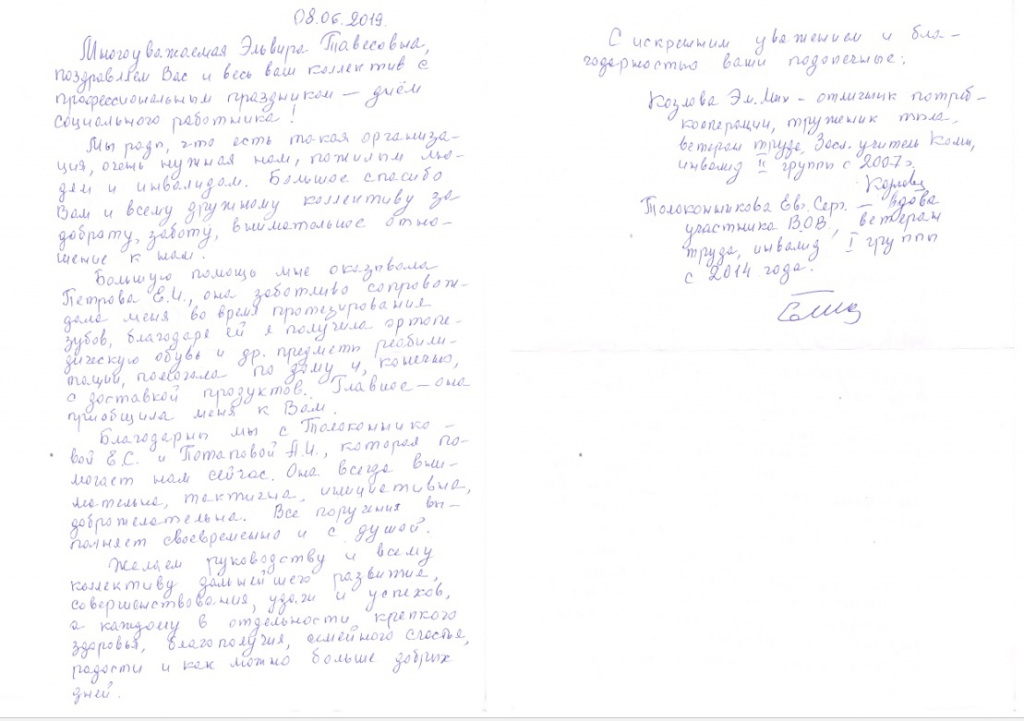 08.06.2019.
Многоуважаемая Эльвира Тавесовна,
поздравляем Вас и весь ваш коллектив с
профессиональным праздником — днём
социального работника!
Мы рады, что есть такая организа-
ция, очень нужная нам, пожилым лю-
дям и инвалидам. Большое спасибо
Вам и всему дружному коллективу за
доброту, заботу, внимательное отно-
шение к нам.
Большую помощь мне оказывала
Петрова Е.И., она заботливо сопровож-
дала меня во время протезирования
зубов, благодаря ей я получила ортопе-
дическую обувь и др. предметы реабили-
тации, помогала по дому и, конечно,
с доставкой продуктов. Главное — она
приобщила меня к Вам.
Благодарны мы с Толоконнико-
вой Е.С. и Потаповой А.И., которая по-
могает нам сейчас. Она всегда вни-
мательна, тактична, инициативна,
доброжелательна. Все поручения вы-
полняет своевременно и с душой.
Желаем руководству и всему
коллективу дальнейшего развития,
совершенствования, удачи и успехов,
а каждому в отдельности крепкого
здоровья, благополучия, семейного счастья,
радости и как можно больше добрых
дней.
С искренним уважением и бла-
годарностью ваши подопечные:
Козлова Эм. Мих - отличник потреб-
кооперации, труженик тыла,
ветеран труда, Засл. учитель Коми,
инвалид II группы с 2007г.
Толоконникова Евг. Серг. — вдова
участника В.О.В., ветеран
труда, инвалид I группы
с 2014 года.